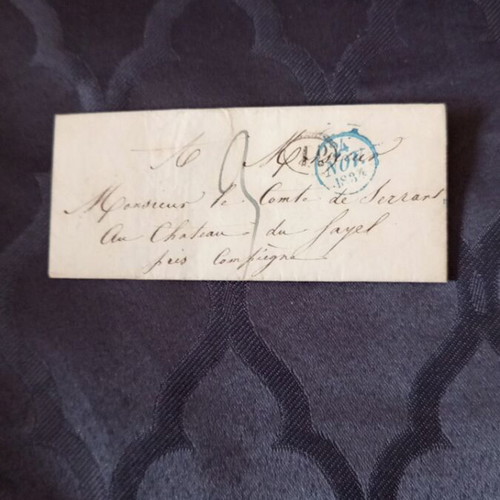 A Monsieur
Monsieur le Comte de Serrant
Au Chateau du fayel
près Compiègne
24
NOV
1834